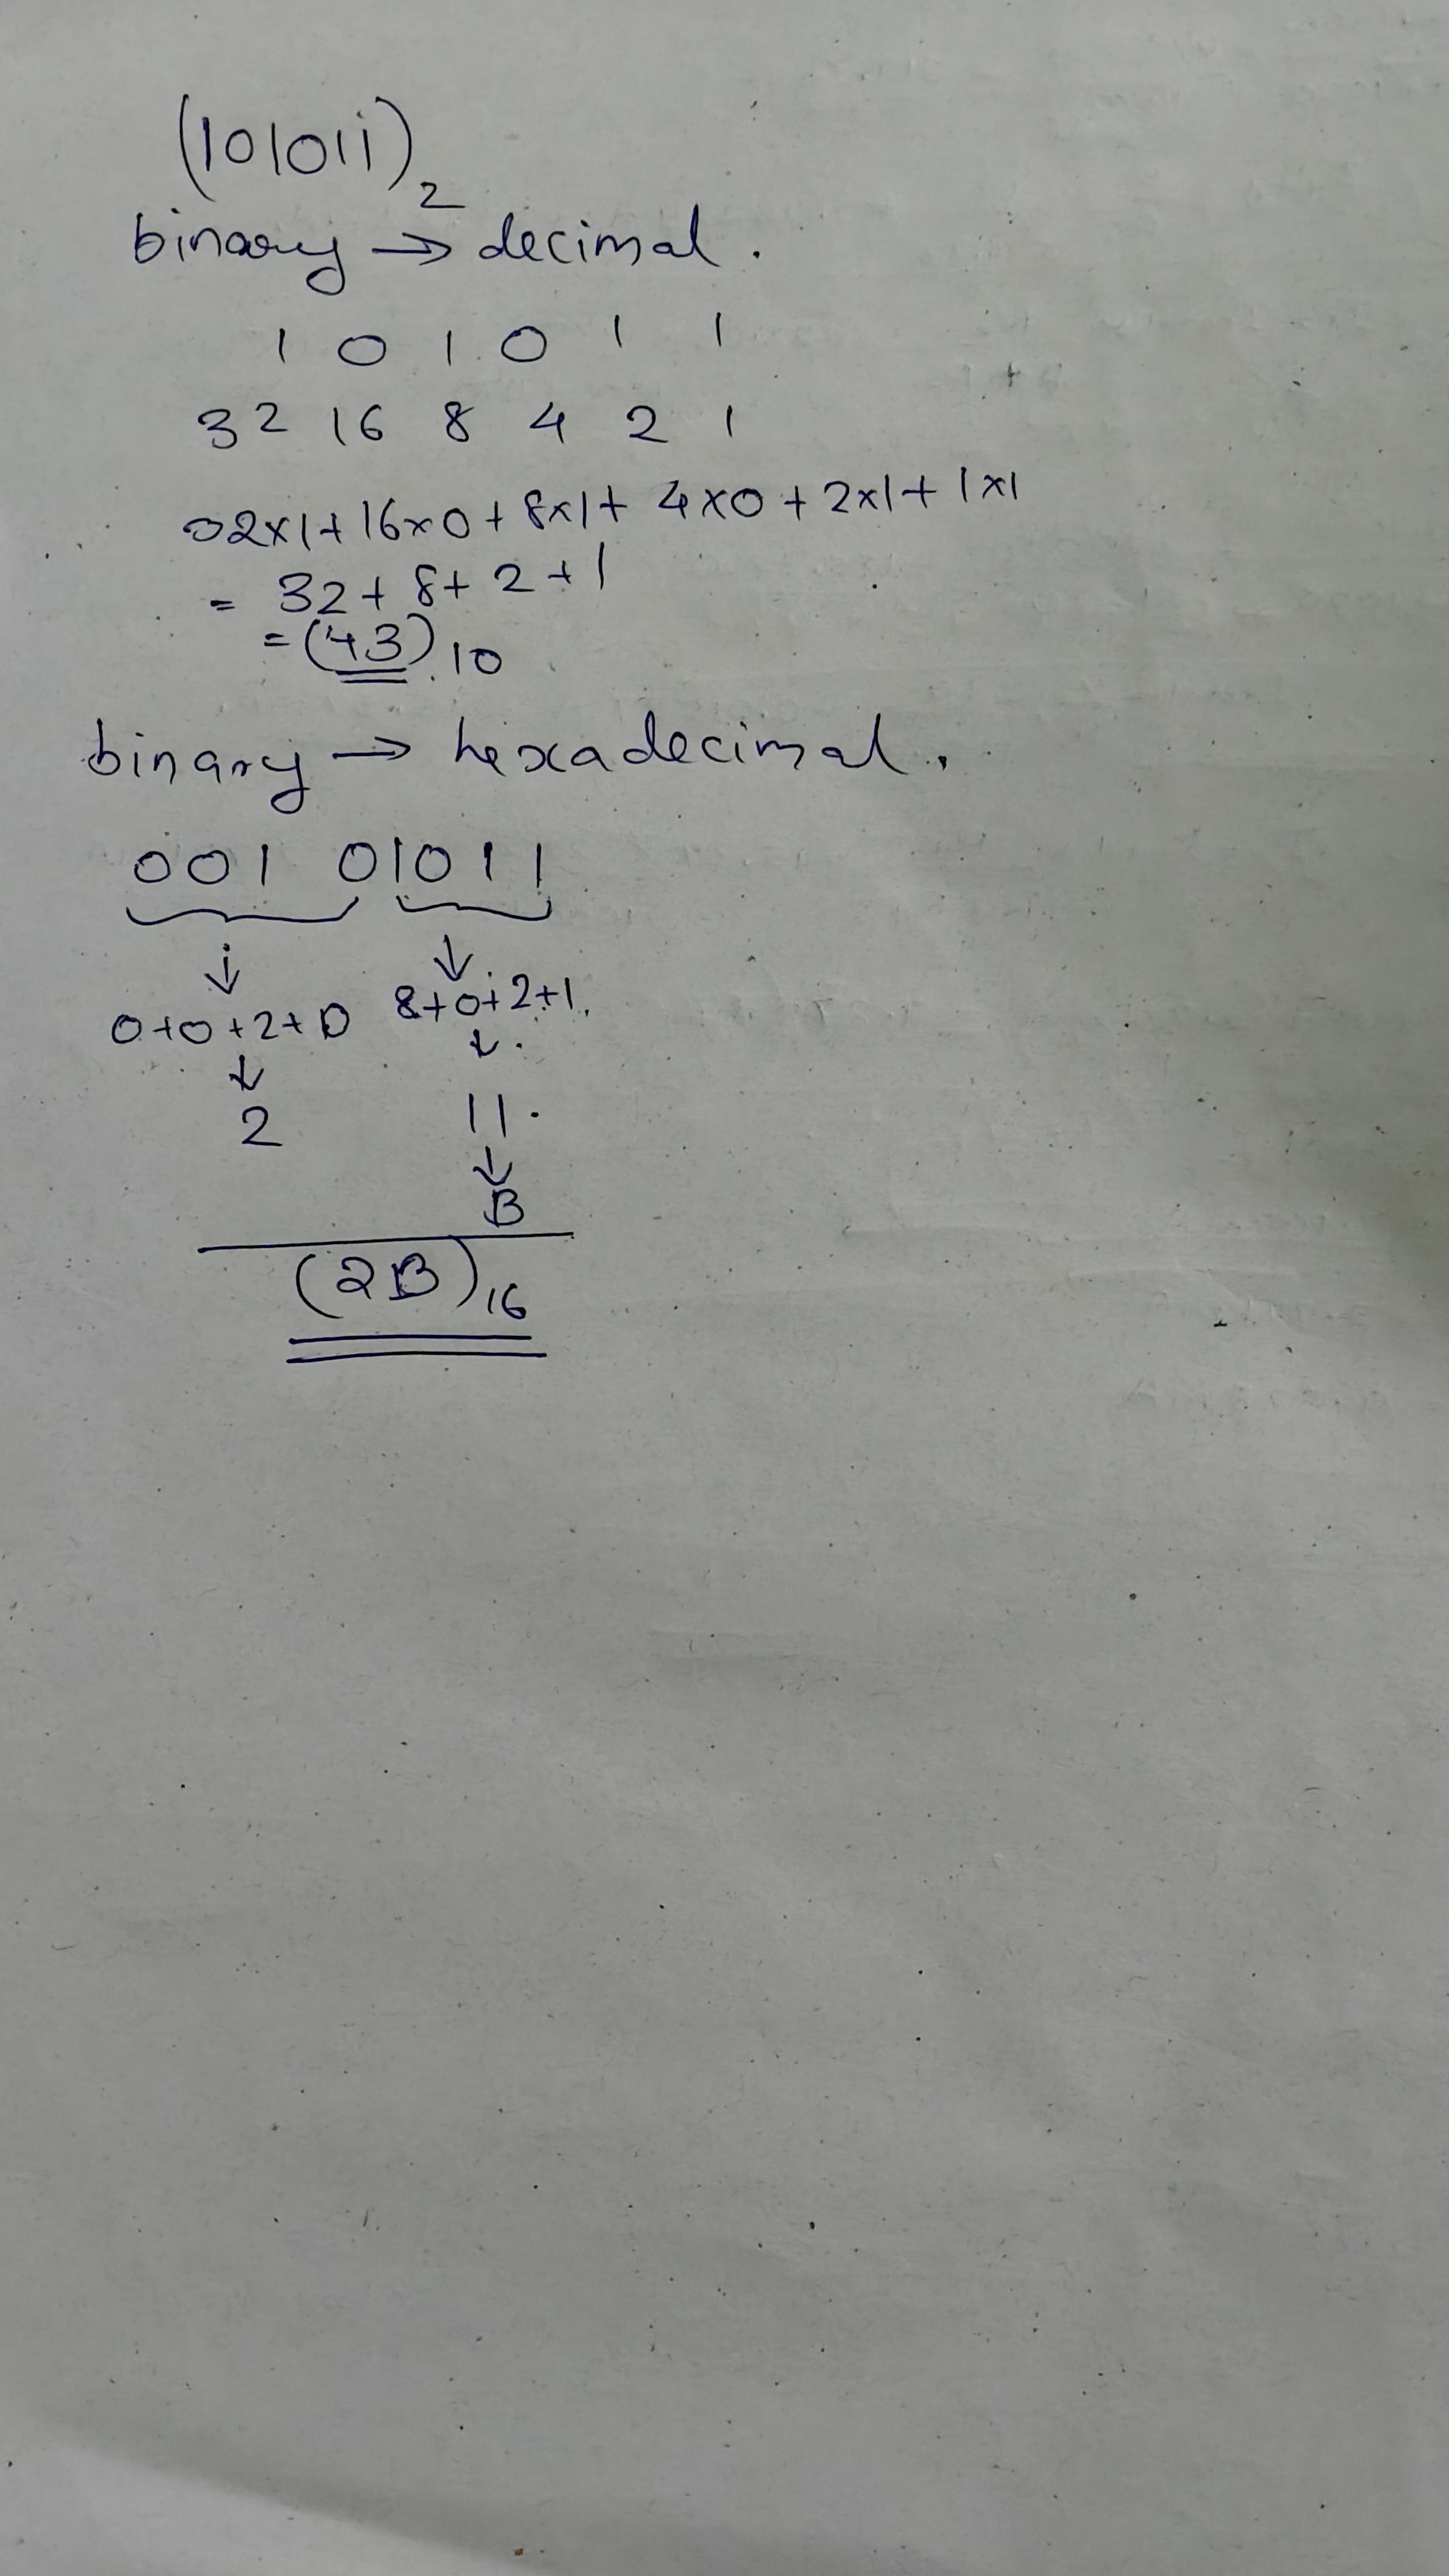 (101011)2
binary → decimal.
1 0 1 0 1 1
32 16 8 4 2 1
32×1+16×0+8×1+4×0+2×1+1×1
= 32+8+2+1
=(43)10
binary → hexadecimal.
0010 1011
↓ ↓
0+0+2+0 8+0+2+1
↓ ↓
2 11
↓
B
(2B)16